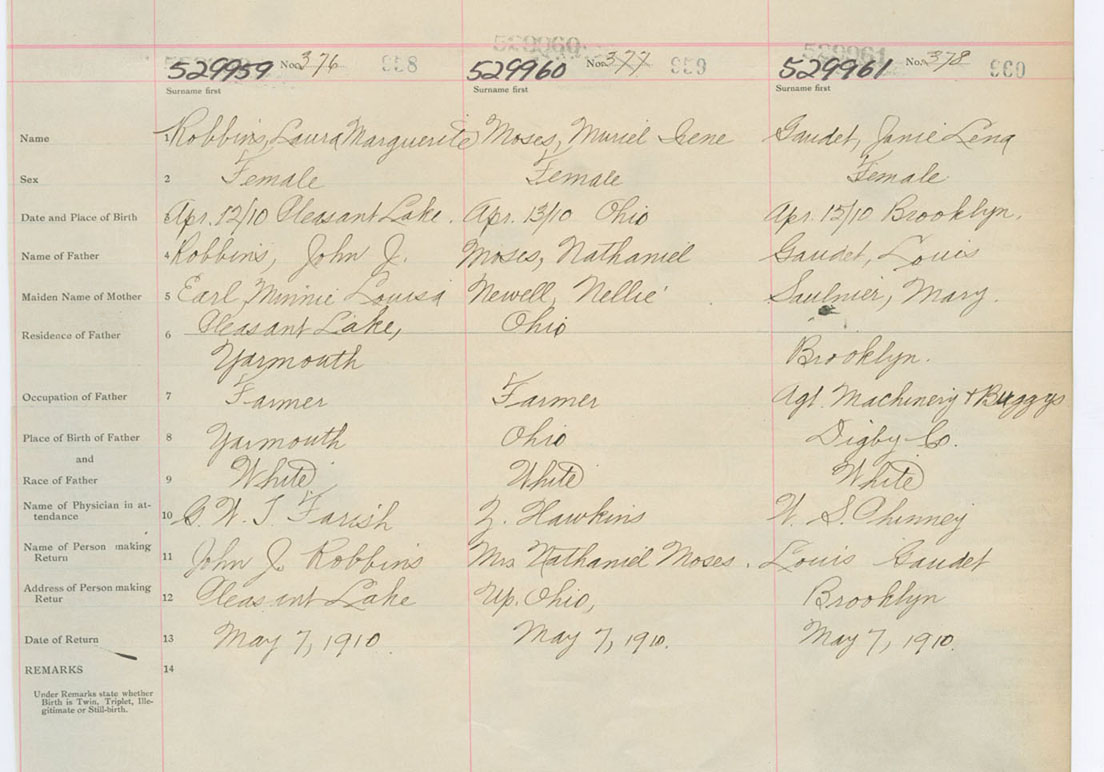 529960 529961
529959 No. 376 958 529960 No. 377 959 529961 No. 378 960
Surname first Surname first Surname first
Name 1 Robbins, Laura Marguerite Moses, Muriel Irene Gaudet, Janie Lena
Sex 2 Female Female Female
Date and Place of Birth 3 Apr. 12/10 Pleasant Lake. Apr. 13/10 Ohio Apr. 15/10 Brooklyn.
Name of Father 4 Robbins, John J. Moses, Nathaniel Gaudet, Louis
Maiden Name of Mother 5 Earl, Minnie Louisa Newell, Nellie Saulnier, Mary.
Residence of Father 6 Pleasant Lake, Ohio
Yarmouth Brooklyn.
Occupation of Father 7 Farmer Farmer Agt. Machinery + Buggys
Place of Birth of Father 8 Yarmouth Ohio Digby Co.
and
Race of Father 9 White White White
Name of Physician in at-
tendance 10 G. W. T. Farish Z. Hawkins W. S. Phinney
Name of Person making
Return 11 John J. Robbins Mrs Nathaniel Moses. Louis Gaudet
Address of Person making
Retur 12 Pleasant Lake Up. Ohio, Brooklyn
Date of Return 13 May 7, 1910. May 7, 1910. May 7, 1910.
REMARKS 14
Under Remarks state whether
Birth is Twin, Triplet, Ille-
gitimate or Still-birth.